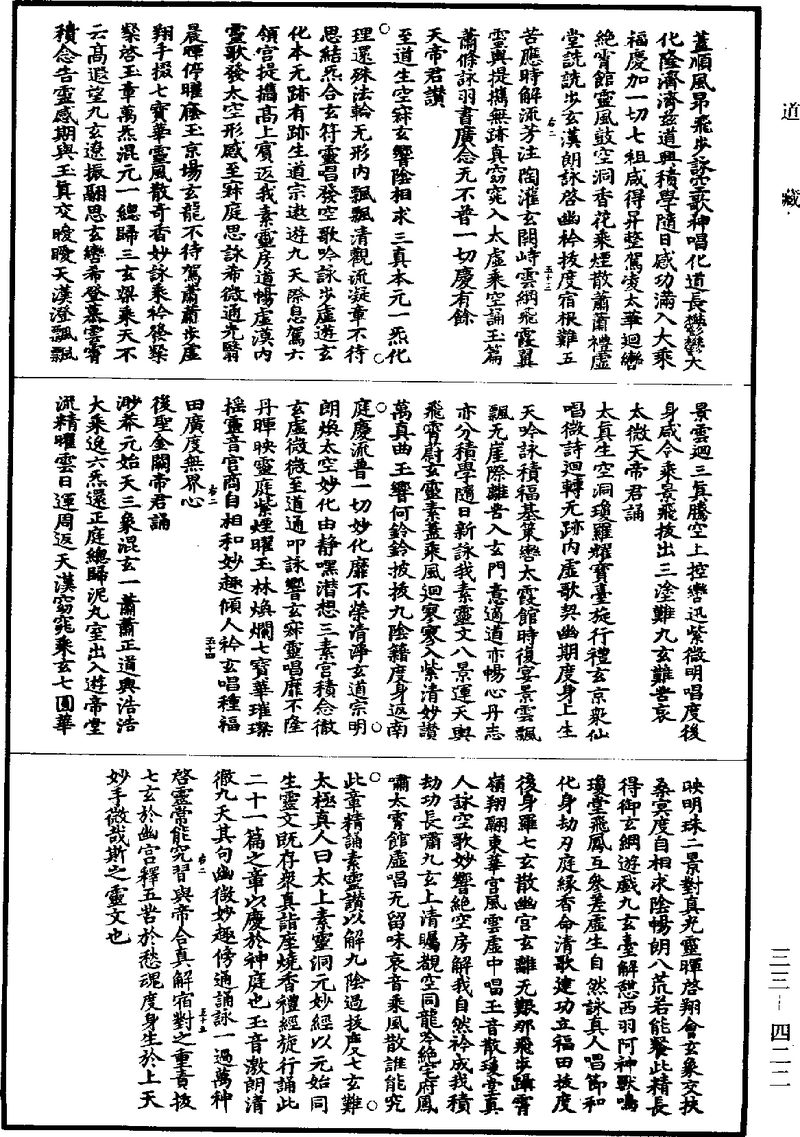 道藏
蓋順風昂飛步詠空歌神唱化道長欎欎大
化隆濟濟兹道興積學隨日感功滿入大乘
福慶加一切七祖咸得昇整駕凌太華迴轡
絶霄館靈風鼓空洞香花乘煙散蕭蕭禮虛
堂詵詵步玄漢朗詠啓幽衿拔度宿根難五
右二
五十三
苦應時解流芳注陶灌玄闕峙雲網飛霞翼
靈輿提攜無跡真窈窕入太虛乘空誦玉篇
蕭條詠羽書廣念无不普一切慶有餘
天帝君讃
至道生空寂玄響陰相求三真本元一炁化
理還殊法輪无形內飄飄清觀流凝章不待
思結炁合玄符靈唱發空歌吟詠步虛遊玄
化本无跡有跡生道宗遨遊九天際息駕六
領宮提攜高上賓迈我素靈房道暢虛漠內
靈歌發太空形感至寂庭思詠希微通光翳
晨暉停曜蔭玉京塲玄龍不待駕蕭蕭步虛
翔手掇七寶華靈風散奇香妙詠乘衿發粲
粲啓玉章萬炁混元一總歸三玄梁乘天不
云高遐望九玄遼振翮思玄轡希登慕雲霄
積念告靈感期與玉真交晙曖天漢澄飄飄
景雲迴三真騰空上控轡迅紫微明唱度後
身咸令乘景飛拔出三塗難九玄離苦哀
太微天帝君誦
太真生空洞瓊羅耀寶臺旋行禮玄京衆仙
唱微詩迴轉无跡內虛歌契幽期度身上生
天吟詠積福基策轡太霞館時復宴景雲飄
飄无崖際離苦入玄門意適道亦暢心丹志
亦分積學隨日新詠我素靈文八景運天輿
飛霄蔚玄靈素蓋乘風迴寥寥入紫清妙讃
萬真曲玉響何鈴鈴披拔九陰籍度身返南
庭慶流普一切妙化靡不榮清淨玄道宗明
朗煥太空妙化由静嘿潜想三素宮積念徹
玄虛微微至道通叩詠響玄寂靈唱靡不隆
丹暉映靈庭紫煙曜玉林煥爛七寶華璀璨
揺靈音宮商自相和妙趣傾人衿玄唱種福
右二
五十四
田廣度無界心
後聖金闕帝君誦
渺莽元始天三象混玄一蕭蕭正道興浩浩
大乘逸六炁還正庭總歸泥九室出入遊帝堂
流精曜雲日運周返天漢窈窕乘玄七圓華
映明珠二景對真光靈暉啓翔會玄象交扶
桑冥度自相求陰暢朗八荒若能飡此精長
得御玄綱遊戲九玄臺解憇西羽阿神獸鳴
瓊堂飛鳳互參差虛生自然詠真人唱節和
化身劫刃庭緣香命清歌建功立福田拔度
後身羅七玄散幽宮玄離无艱那飛步躡霄
嶺翔翮東華宮風雲虛中唱玉音散瓊堂真
人詠空歌妙響絶空房解我自然衿成我積
劫功長嘯九玄上清矚觀空同龍吟絶宅府鳳
嘯太霄館虛唱无留味哀音乘風散誰能究
此章精誦素靈讃以解九陰過拔度七玄難
太極真人曰太上素靈洞元妙經以元始同
生靈文既存衆真詣座燒香禮經旋行誦此
二十一篇之章以慶於神庭也玉音激朗清
徹九天其句幽微妙趣傍通誦詠一過萬神
右二
五十五
啓靈當能究習與帝合真解宿對之重責拔
七玄於幽宮釋五苦於愁魂度身生於上天
妙乎微哉斯之靈文也
三三—四二二